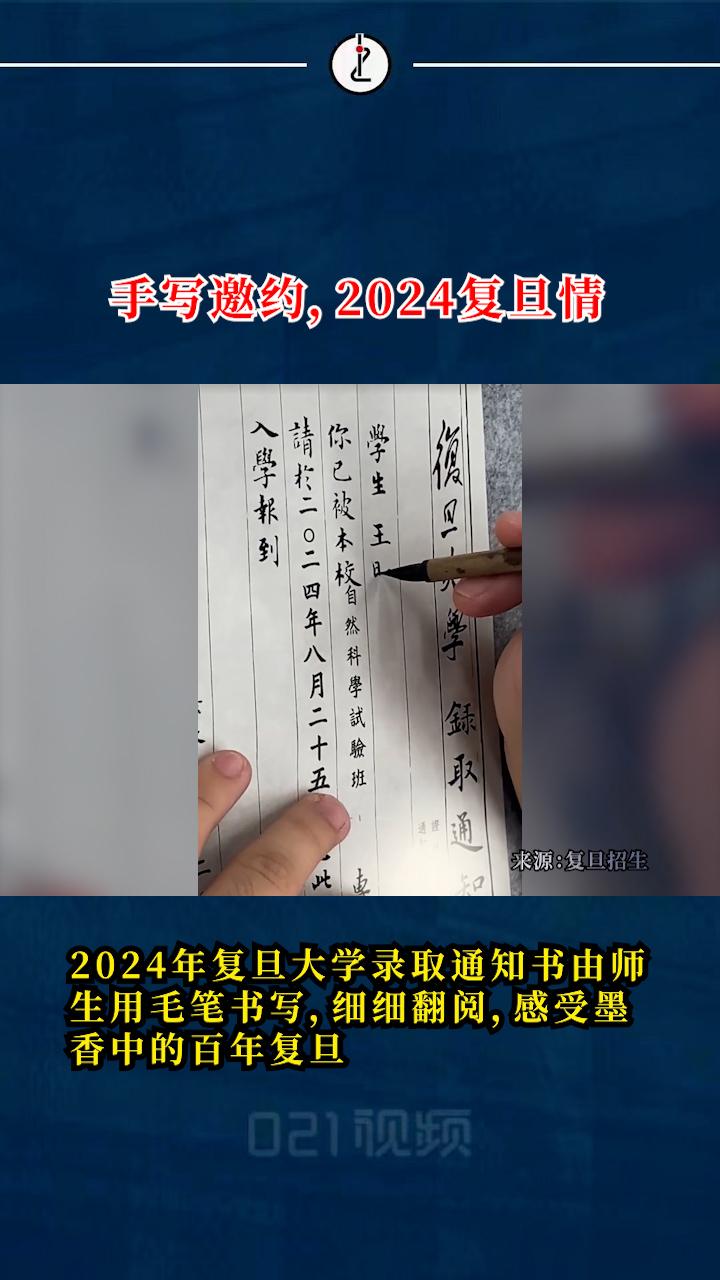 手写邀约, 2024复旦情
復旦大學 録取通知
學生 王
你已被本校自然科學試驗班 專
請於二〇二四年八月二十五 此
入學報到
来源:复旦招生
2024年复旦大学录取通知书由师
生用毛笔书写, 细细翻阅, 感受墨
香中的百年复旦
021视频